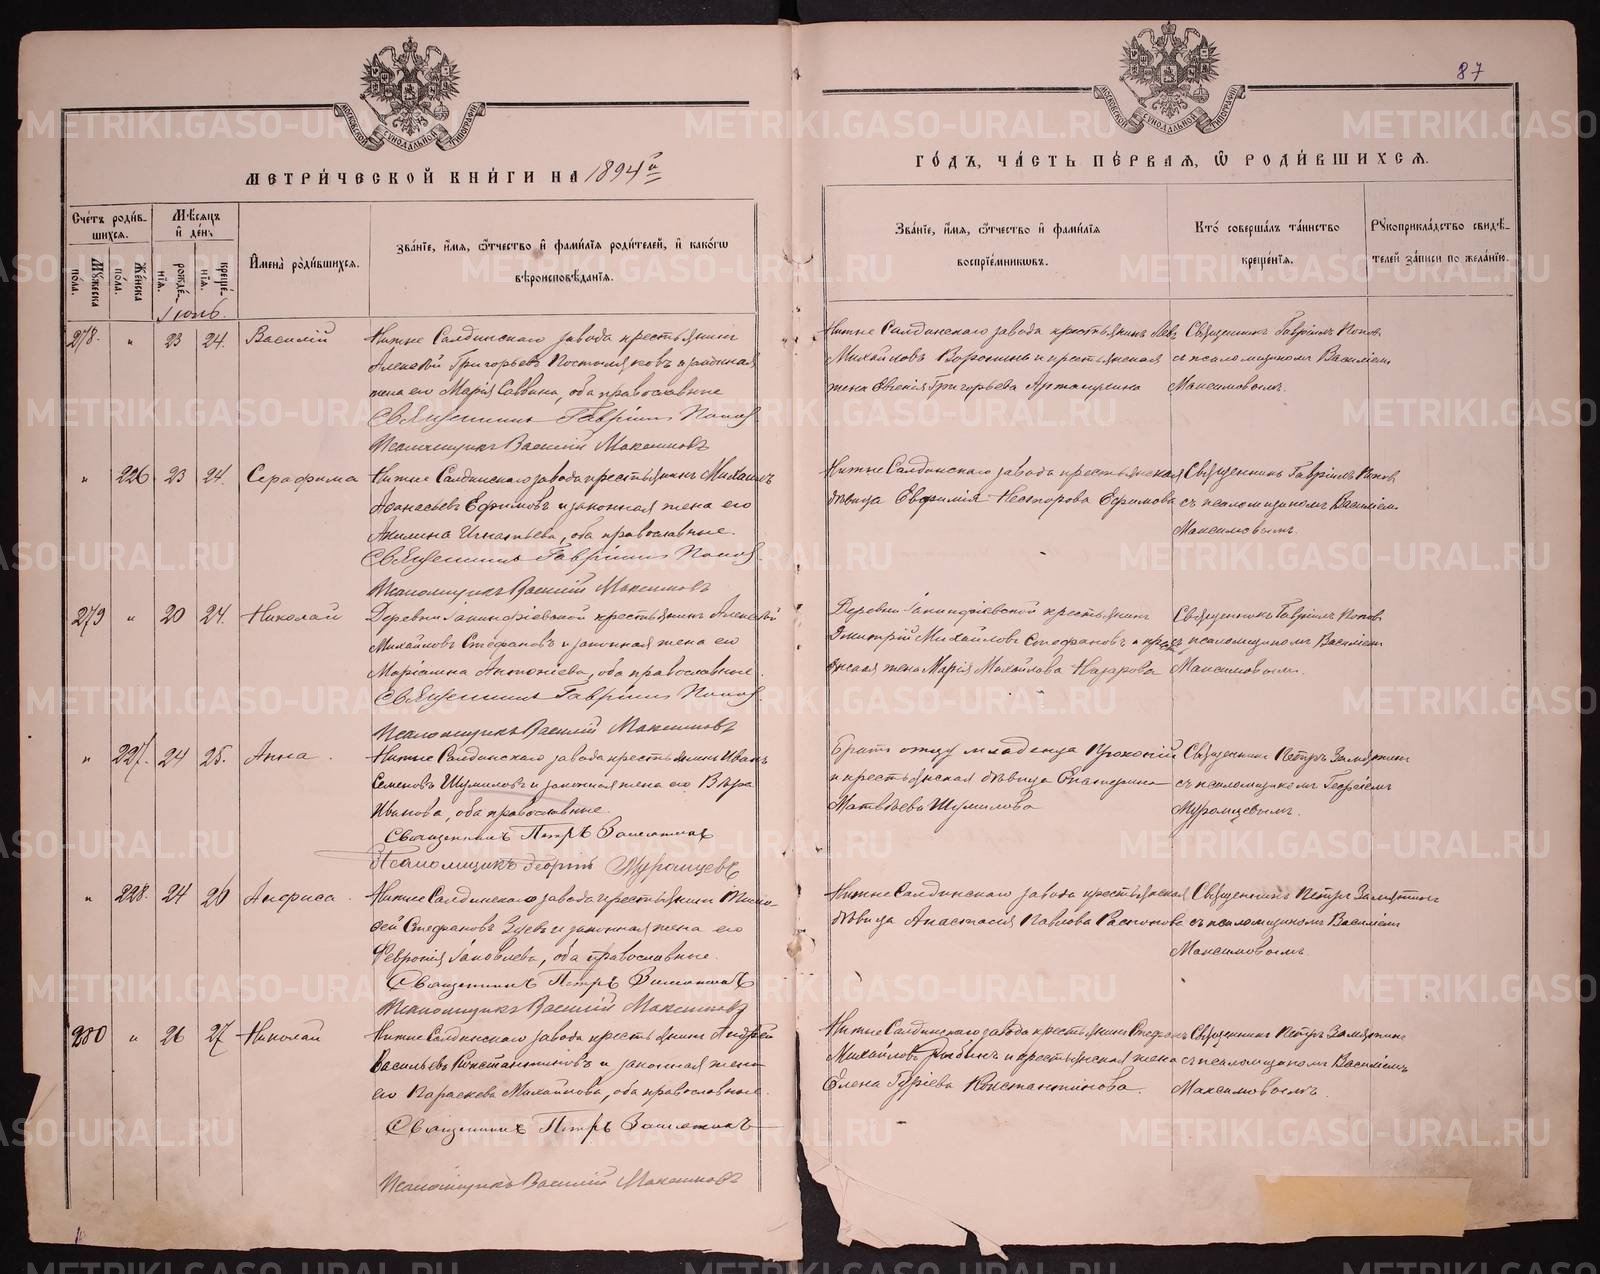 87
МЕТРИ́ЧЕСКОЙ КНИ́ГИ НА 1894 й
ГО́ДЪ, ЧА́СТЬ ПЕ́РВАЯ, Ѿ РОДИ́ВШИХСЯ.
МОСКОВСКОЙ СѴНОДАЛЬНОЙ ТИПОГРАФІИ
МОСКОВСКОЙ СѴНОДАЛЬНОЙ ТИПОГРАФІИ
Сче́тъ роди́в-
шихся.
Му́жеска по́ла.
Же́нска по́ла.
Мѣ́сяцъ
и҆ де́нь
рожде́-
нія.
креще́-
нія.
И҆мена̀ роди́вшихся.
Зва́ніе, и҆́мя, ѻ҆́тчество и҆ фами́лія роди́телей, и҆ како́гѡ
вѣроисповѣ́данія.
Зва́ніе, и҆́мя, ѻ҆́тчество и҆ фами́лія
воспріе́мниковъ.
Кто̀ соверша́лъ та́инство
креще́нія.
Рꙋкоприкла́дство свидѣ́-
телей за́писи по жела́нію.
Іюль.
278. " 23 24. Василій
Нижне Салдинскаго завода крестьянинъ
Алексѣй Григорьевъ Постоляковъ и законная
жена его Марія Саввина, оба православные
Священникъ Гавріилъ Поповъ
Псаломщикъ Василій Максимовъ
Нижне Салдинскаго завода крестьянинъ Левъ
Михайловъ и крестьянская
жена Евгенія Григорьева
Священникъ Гавріилъ Поповъ
съ псаломщикомъ Василіемъ
Максимовымъ.
" 226 23 24. Серафима
Нижне Салдинскаго завода крестьянинъ Михаилъ
Афанасьевъ Ефимовъ и законная жена его
Акилина Игнатьева, оба православные.
Священникъ Гавріилъ Поповъ
Псаломщикъ Василій Максимовъ
Нижне Салдинскаго завода крестьянская
дѣвица Евфимія Несторова Ефимова
Священникъ Гавріилъ Поповъ
съ псаломщикомъ Василіемъ
Максимовымъ.
279 " 20 24. Николай
Деревни крестьянинъ Алексѣй
Михайловъ Стефановъ и законная жена его
Маріамна Антоніева, оба православные.
Священникъ Гавріилъ Поповъ
Псаломщикъ Василій Максимовъ
Деревни крестьянинъ
Дмитрій Михайловъ Стефановъ и крестья-
нская жена Марія Михайлова Назарова
Священникъ Гавріилъ Поповъ
съ псаломщикомъ Василіемъ
Максимовымъ.
" 227. 24 25. Анна.
Нижне Салдинскаго завода крестьянинъ Иванъ
Семеновъ Шумиловъ и законная жена его Вѣра
Иванова, оба православные.
Священникъ Петръ Замятинъ
Псаломщикъ Георгій Мурамцевъ
Братъ отцу младенца Прокопій
и крестьянская дѣвица Екатерина
Матвѣева Шумилова
Священникъ Петръ Замятинъ
съ псаломщикомъ Георгіемъ
Мурамцевымъ.
" 228. 24 26 Анфиса.
Нижне Салдинскаго завода крестьянинъ
Стефановъ Зуевъ и законная жена его
Февронія Іаковлева, оба православные.
Священникъ Петръ Замятинъ
Псаломщикъ Василій Максимовъ
Нижне Салдинскаго завода крестьянская
дѣвица Анастасія Павлова
Священникъ Петръ Замятинъ
съ псаломщикомъ Василіемъ
Максимовымъ.
280 " 26 27 Николай
Нижне Салдинскаго завода крестьянинъ Андрей
Васильевъ Константиновъ и законная жена
его Параскева Михайлова, оба православные.
Священникъ Петръ Замятинъ
Псаломщикъ Василій Максимовъ
Нижне Салдинскаго завода крестьянинъ Стефанъ
Михайловъ и крестьянская жена
Елена Гуріева Константинова.
Священникъ Петръ Замятинъ
съ псаломщикомъ Василіемъ
Максимовымъ.
METRIKI.GASO-URAL.RU